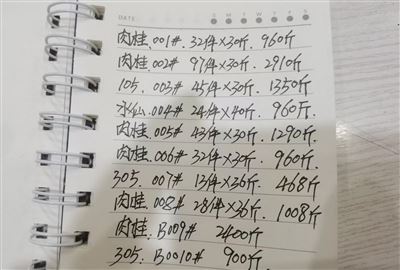 DATE:
S M T W T F S
肉桂.001# 32件×30斤. 960斤
肉桂.002# 97件×30斤. 2910斤
105. 003# 45件×30斤. 1350斤
水仙.004# 24件×40斤. 960斤.
肉桂.005# 43件×30斤. 1290斤.
肉桂.006# 32件×30斤. 960斤
305. 007# 13件×36斤. 468斤
肉桂.008# 28件×36斤. 1008斤
肉桂. B009# 2400斤
305. B0010# 900斤